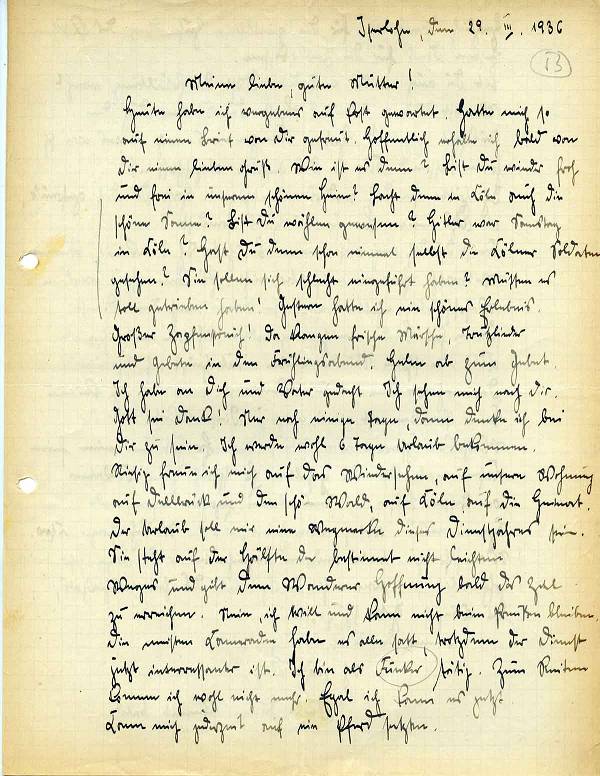 Iserlohn, den 29. III. 1936
13
Meine liebe, gute Mutter!
Heute habe ich vergebens auf Post gewartet. Hatte mich so
auf einen Brief von Dir gefreut. Hoffentlich erhalte ich bald von
Dir einen lieben Gruß. Wie ist es denn? Bist Du wieder froh
und frei in unserem schönen Heim? Lacht denn in Köln auch die
schöne Sonne? Bist Du wählen gewesen? Hitler war Samstag
in Köln? Hast Du denn schon einmal selbst die Kölner Soldaten
gesehen? Sie sollen sich schlecht eingeführt haben? Müssen es
toll getrieben haben! Gestern hatte ich ein schönes Erlebnis.
Großer Zapfenstreich! Da klangen frische Märsche, Trutzlieder
und Gebete in den Frühlingsabend. Helm ab zum Gebet.
Ich habe an Dich und Vater gedacht. Ich sehne mich nach Dir.
Gott sei Dank! Nur noch einige Tage, dann denke ich bei
Dir zu sein. Ich werde wohl 6 Tage Urlaub bekommen.
Riesig freue ich mich auf das Wiedersehen, auf unsere Wohnung
auf Dellbrück und den schö Wald, auf Köln, auf die Heimat.
Der Urlaub soll mir eine Wegmarke dieses Dienstjahres sein.
Sie steht auf der Hälfte des bestimmt nicht leichten
Weges und gibt dem Wanderer Hoffnung bald das Ziel
zu erreichen. Nein, ich will und kann nicht beim Preußen bleiben.
Die meisten Kameraden haben es alle satt, trotzdem der Dienst
jetzt interressanter ist. Ich bin als Funker tätig. Zum Reiten
komme ich wohl nicht mehr. Egal ich kann es jetzt.
Kann mich jederzeit auf ein Pferd setzen.